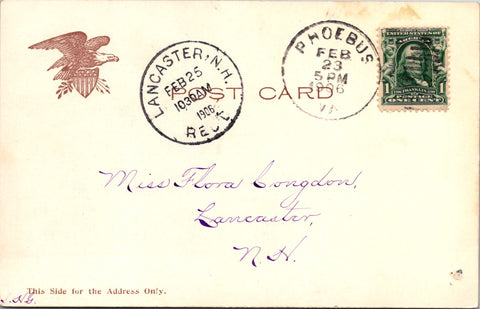 LANCASTER, N.H.
FEB 25
1030AM
1906
REC'D
PHOEBUS
FEB
23
5 PM
1906
VA.
UNITED STATES OF AMERICA
1 1
POSTAGE
ONE CENT
POST CARD
Miss Flora Congdon,
Lancaster,
N.H.
This Side for the Address Only.